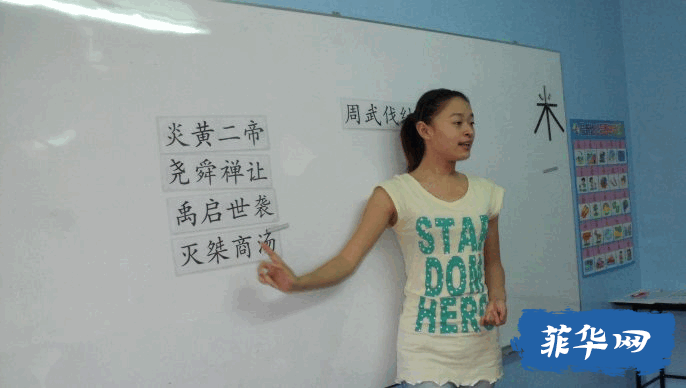 炎黄二帝
尧舜禅让
禹启世袭
灭桀商汤
周武伐纣
米
STAR
DOM
HERO
菲华网